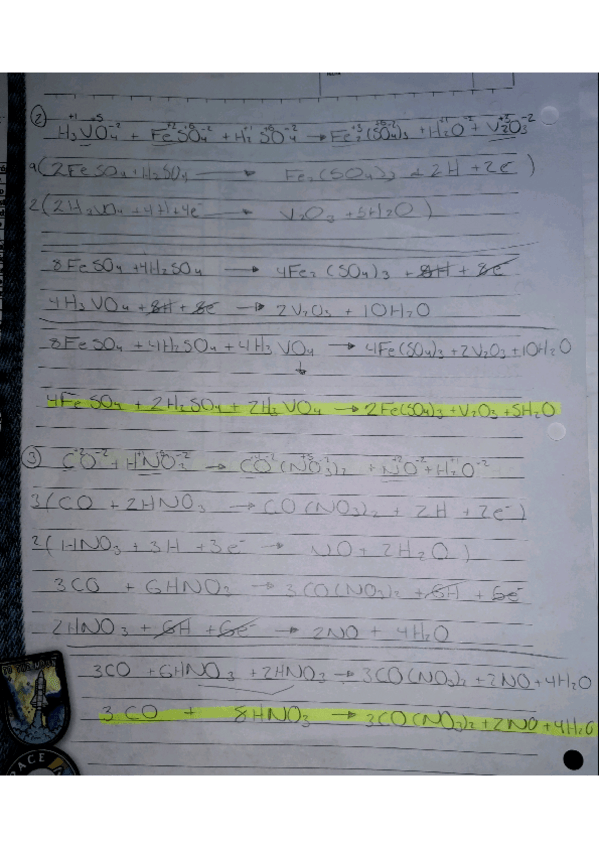 ② H₃VO₄ + FeSO₄ + H₂SO₄ → Fe₂(SO₄)₃ + H₂O + V₂O₃
4(2FeSO₄+H₂SO₄ → Fe₂(SO₄)₃ + 2H + 2e⁻)
2(2H₃VO₄+4H+4e⁻ → V₂O₃ +5H₂O)
8FeSO₄+4H₂SO₄ → 4Fe₂(SO₄)₃ + 8H + 8e⁻
4H₃VO₄+8H + 8e⁻ → 2V₂O₃ + 10H₂O
8FeSO₄ + 4H₂SO₄ + 4H₃VO₄ → 4Fe(SO₄)₃+2V₂O₃+10H₂O
4FeSO₄ + 2H₂SO₄ + 2H₃VO₄ → 2Fe(SO₄)₃+V₂O₃+5H₂O
③ CO + HNO₃ → CO(NO₃)₂ + NO + H₂O
3(CO + 2HNO₃ → CO(NO₃)₂ + 2H + 2e⁻)
2(HNO₃ + 3H + 3e⁻ → NO + 2H₂O)
3CO + 6HNO₃ → 3CO(NO₃)₂ + 6H + 6e⁻
2HNO₃ + 6H + 6e⁻ → 2NO + 4H₂O
3CO +6HNO₃ +2HNO₃ → 3CO(NO₃)₂+2NO+4H₂O
3CO + 8HNO₃ → 3CO(NO₃)₂+2NO+4H₂O